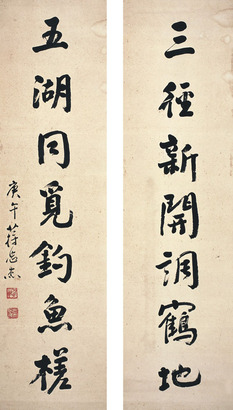 三徑新開調鶴地
五湖同覓釣魚槎
庚午